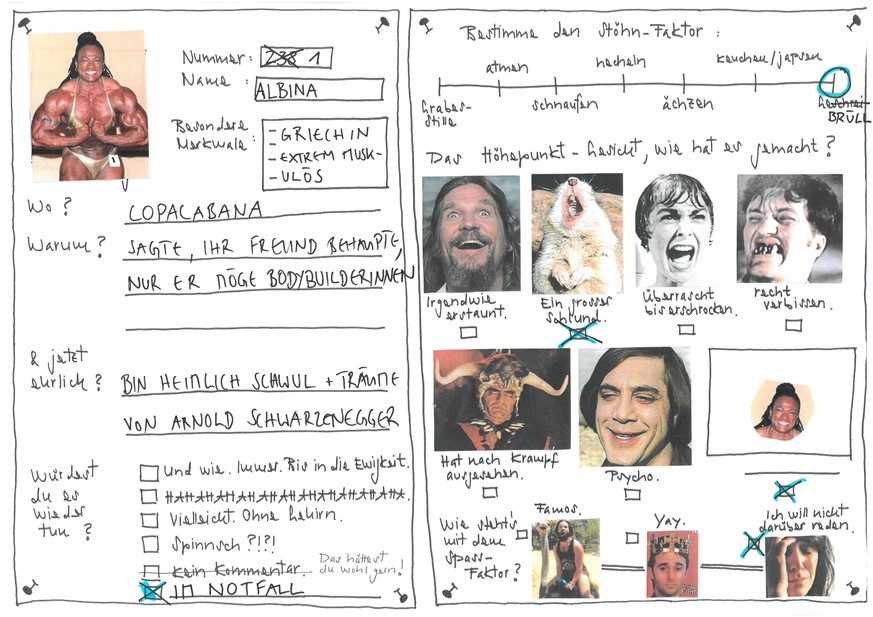 Nummer: 238 1
Name: ALBINA
Besondere
Merkmale:
- GRIECHIN
- EXTREM MUSK-
- ULÖS
1
Wo? COPACABANA
Warum? SAGTE, IHR FREUND BEHAUPTE,
NUR ER MÖGE BODYBUILDERINNEN
& jetzt
ehrlich? BIN HEIMLICH SCHWUL + TRÄUME
VON ARNOLD SCHWARZENEGGER
Würdest
du es
wieder
tun?
Und wie. Immer. Bis in die Ewigkeit.
Vielleicht. Ohne Gehirn.
Spinnsch?!?!
Kein Kommentar. Das hättest
du wohl gern!
IM NOTFALL
Bestimme den Stöhn-Faktor:
atmen
hecheln
keuchen/japsen
Grabes-
stille
schnaufen
ächzen
Geschrei
BRÜLL
Das Höhepunkt-Gesicht, wie hat es gemacht?
Irgendwie
erstaunt.
Ein grosser
Schlund.
Überrascht
bis erschrocken.
recht
verbissen.
Hat nach Krampf
ausgesehen.
Psycho.
Wie steht's
mit dem
Spass-
Faktor?
Famos.
Yay.
Ich will nicht
darüber reden.